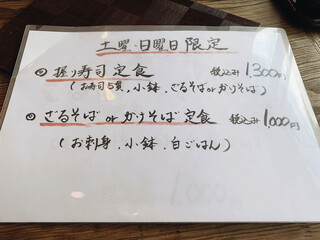 土曜・日曜日限定
握り寿司定食 税込み1,300円
(お寿司5貫、小鉢、ざるそばorかけそば)
ざるそばorかけそば定食 税込み1,000円
(お刺身、小鉢、白ごはん)